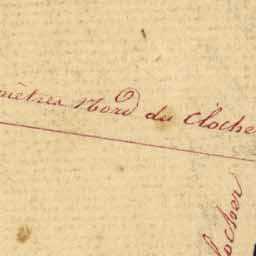 mètres Nord du Cloche
locher